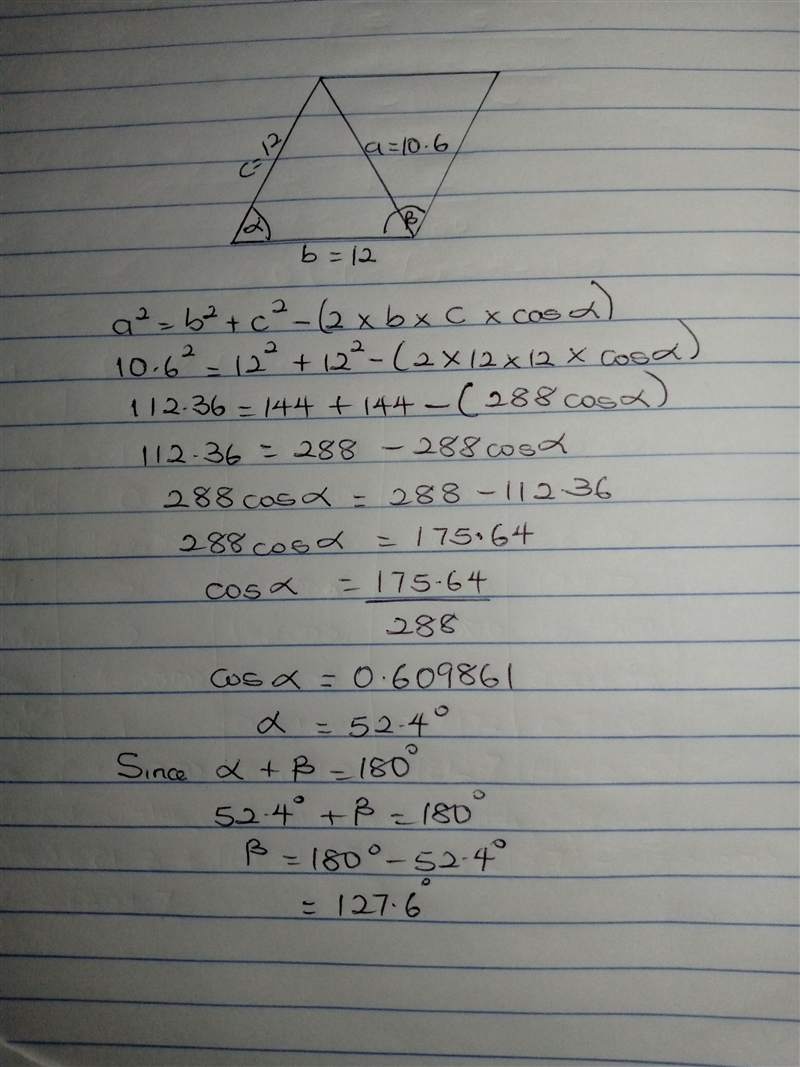 c = 12
a = 10.6
α
β
b = 12
a² = b² + c² - (2 × b × c × cos α)
10.6² = 12² + 12² - (2 × 12 × 12 × cos α)
112.36 = 144 + 144 - (288 cos α)
112.36 = 288 - 288 cos α
288 cos α = 288 - 112.36
288 cos α = 175.64
cos α = 175.64
288
cos α = 0.609861
α = 52.4°
Since α + β = 180°
52.4° + β = 180°
β = 180° - 52.4°
= 127.6°